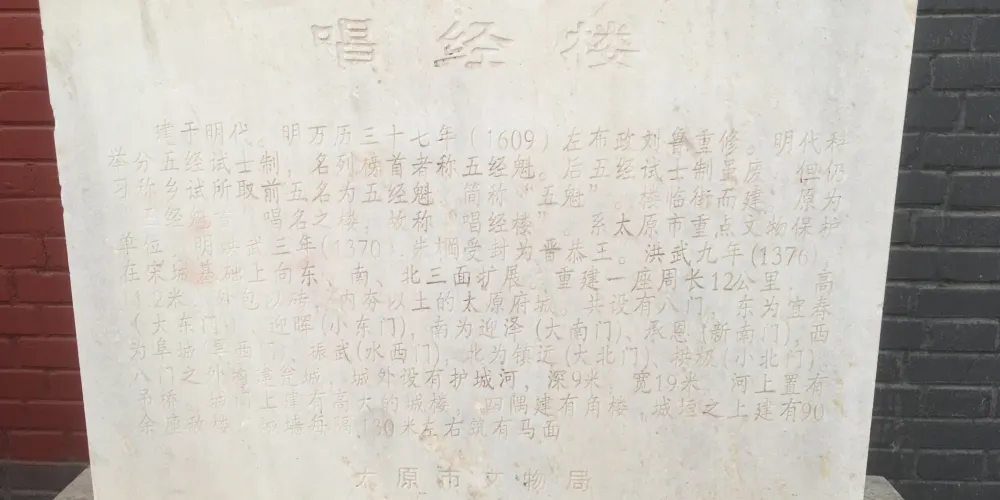 唱经楼
建于明代。明万历三十七年(1609)左布政刘鲁重修。明代科
举分五经试士制，名列榜首者称五经魁。后五经试士制虽废，但仍
习称乡试所取前五名为五经魁，简称“五魁”。楼临街而建，原为
五经 唱名之楼，故称“唱经楼”。系太原市重点文物保护
单位。明洪武三年(1370)朱棡受封为晋恭王。洪武九年(1376)
在宋城基础上向东、南、北三面扩展。重建一座周长12公里，高
12米，外包以砖，内夯以土的太原府城。共设有八门，东为宜春
(大东门)、迎晖(小东门)，南为迎泽(大南门)、承恩(新南门)，西
为阜城 、振武(水西门)，北为镇远(大北门)、拱极(小北门)。
八门之外 建瓮城，城外设有护城河，深9米，宽19米，河上置有
吊桥， 上建有高大的城楼，四隅建有角楼，城垣之上建有90
余座敌楼， 城墙每隔130米左右筑有马面
太原市文物局